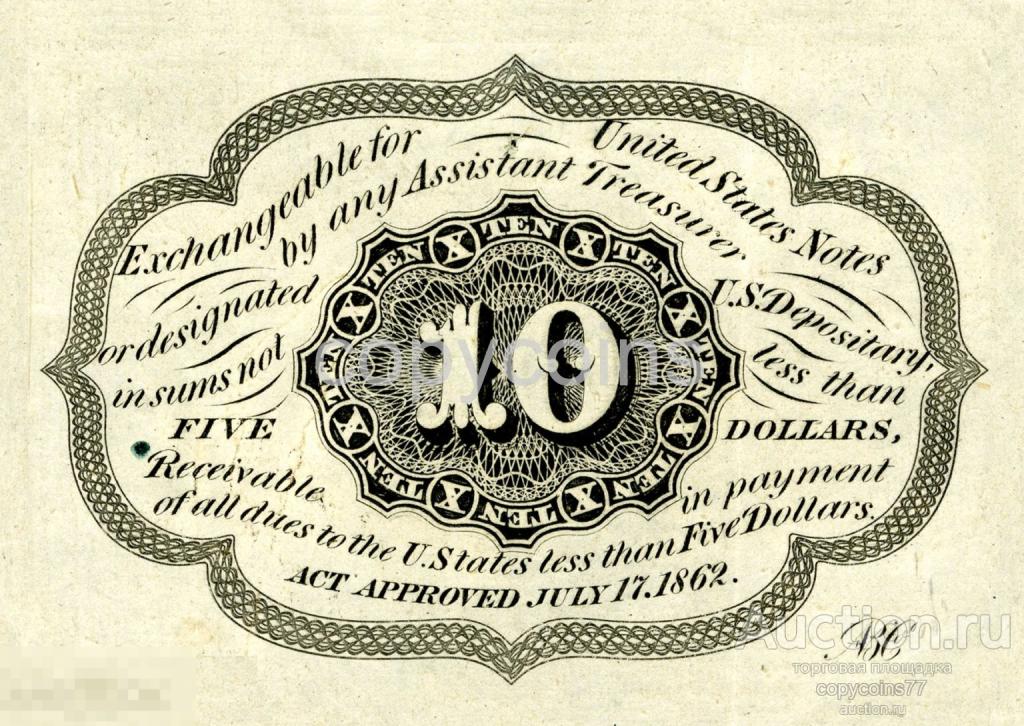 Exchangeable for United States Notes
by any Assistant Treasurer
or designated U.S. Depositary,
in sums not less than
FIVE DOLLARS,
Receivable in payment
of all dues to the U. States less than Five Dollars.
ACT APPROVED JULY 17. 1862.
TEN X TEN X TEN X TEN X TEN X TEN X TEN X TEN X TEN X TEN X
10
copycoins
ABCo
Auction.ru
торговая площадка
copycoins77
auction.ru